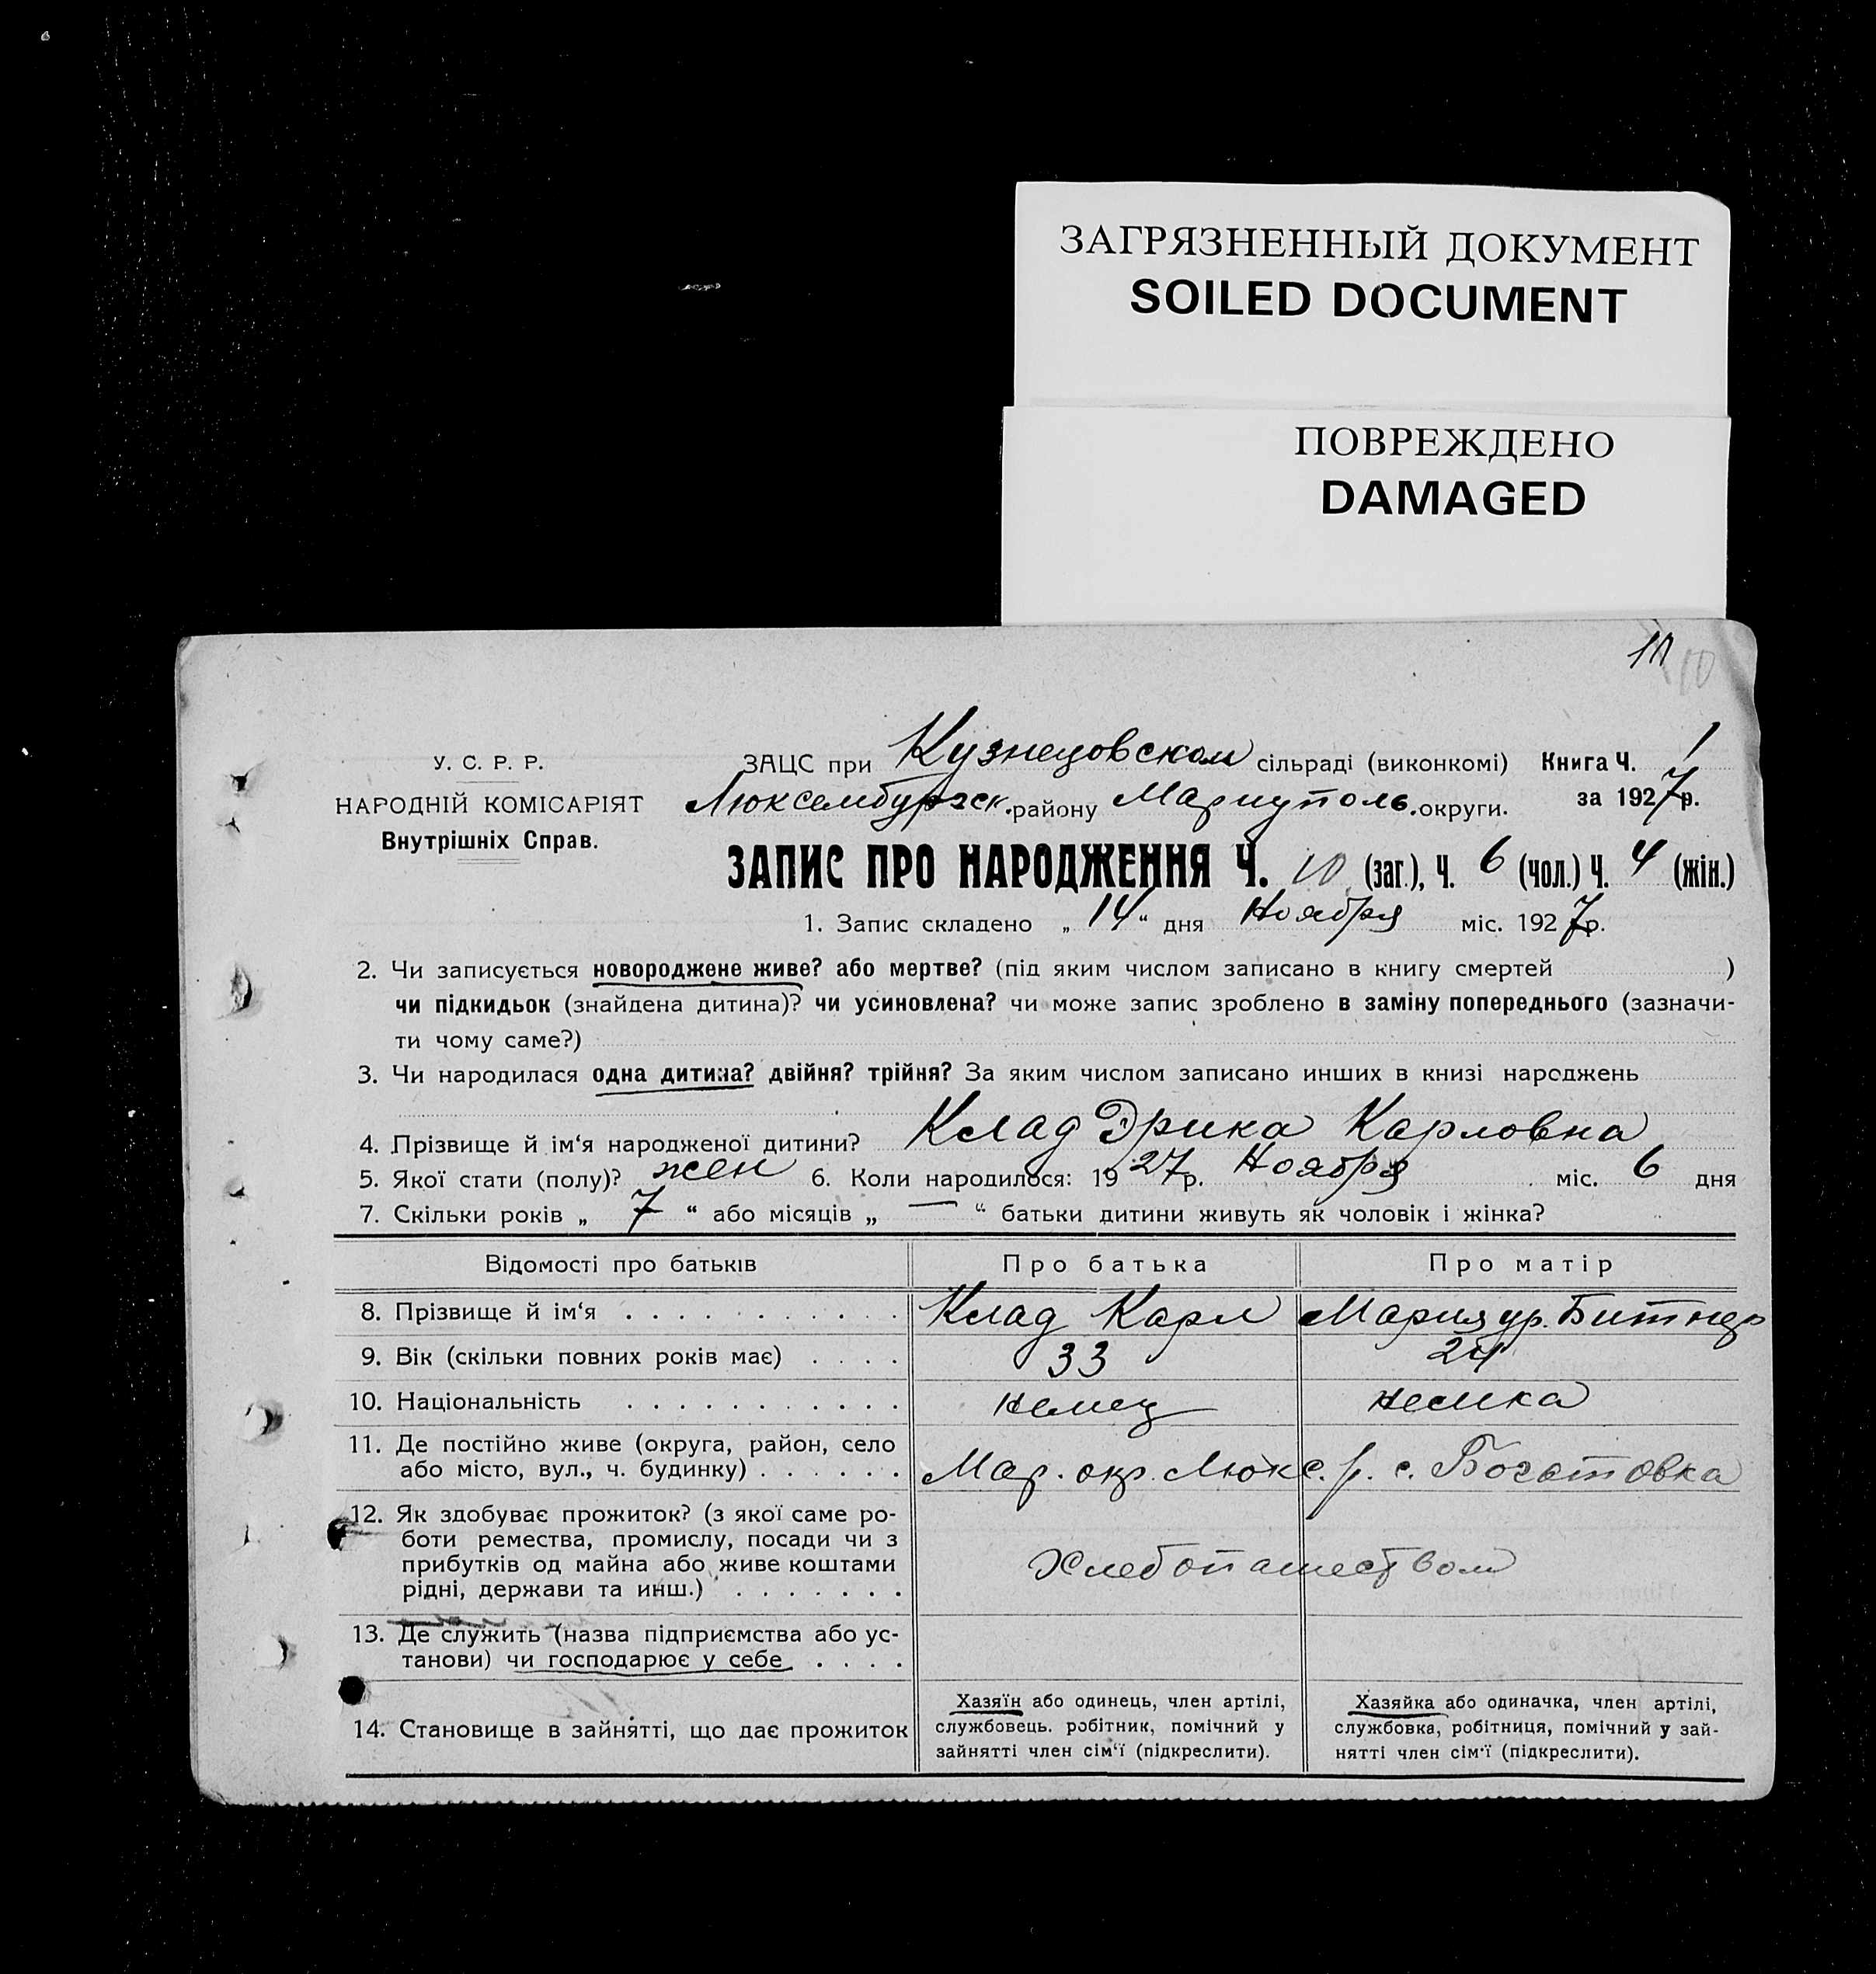 ЗАГРЯЗНЕННЫЙ ДОКУМЕНТ
SOILED DOCUMENT
ПОВРЕЖДЕНО
DAMAGED
10
У. С. Р. Р.
НАРОДНІЙ КОМІСАРІЯТ
Внутрішніх Справ.
ЗАЦС при Кузнецовском сільраді (виконкомі) Книга Ч. 1
Люксембургск. району Мариуполь. округи. за 1927 р.
ЗАПИС ПРО НАРОДЖЕННЯ Ч. 10 (заг.), Ч. 6 (чол.) Ч. 4 (жін.)
1. Запис складено „ 14 “ дня Ноября міс. 1927 р.
2. Чи записується новороджене живе? або мертве? (під яким числом записано в книгу смертей )
чи підкидьок (знайдена дитина)? чи усиновлена? чи може запис зроблено в заміну попереднього (зазначи-
ти чому саме?)
3. Чи народилася одна дитина? двійня? трійня? За яким числом записано инших в книзі народжень
4. Прізвище й ім‘я народженої дитини? Клад Эрика Карловна
5. Якої стати (полу)? жен 6. Коли народилося: 1927 р. Ноября міс. 6 дня
7. Скільки років „ 7 “ або місяців „ — “ батьки дитини живуть як чоловік і жінка?
Відомості про батьків Про батька Про матір
8. Прізвище й ім‘я . . . . . . . . . . . Клад Карл Мария ур. Битнер
9. Вік (скільки повних років має) . . . . 33 24
10. Національність . . . . . . . . . . . немец немка
11. Де постійно живе (округа, район, село
або місто, вул., ч. будинку) . . . . . . Мар. окр. Люкс. р. с. Богатовка
12. Як здобуває прожиток? (з якої саме ро-
боти ремества, промислу, посади чи з
прибутків од майна або живе коштами
рідні, держави та инш.) . . . . . . . Хлебопашеством
13. Де служить (назва підприємства або ус-
танови) чи господарює у себе . . . .
14. Становище в зайнятті, що дає прожиток
Хазяїн або одинець, член артілі,
службовець. робітник, помічний у
зайнятті член сім‘ї (підкреслити).
Хазяйка або одиначка, член артілі,
службовка, робітниця, помічний у зай-
нятті член сім‘ї (підкреслити).